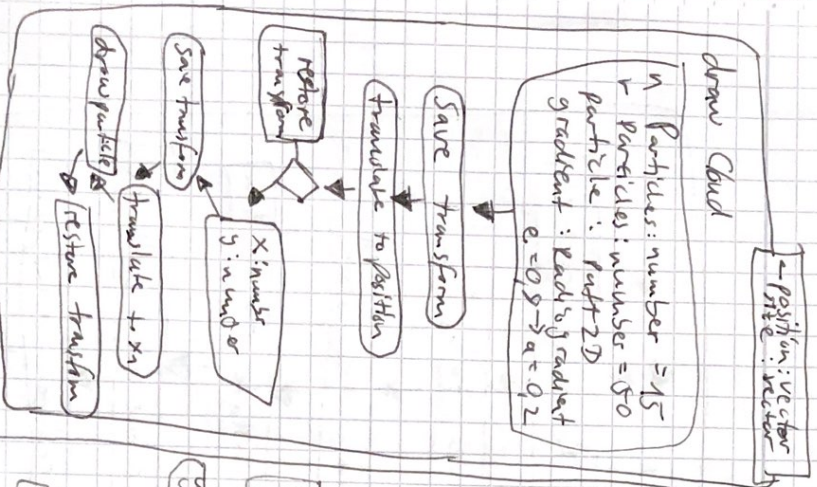 position: vector
size: vector
draw Cloud
n Particles: number = 15
r Particles: number = 50
particle: Path2D
gradient: Radialgradient
Save transform
translate to position
restore
transform
x: number
y: number
save transform
translate to xy
draw particle
restore transform